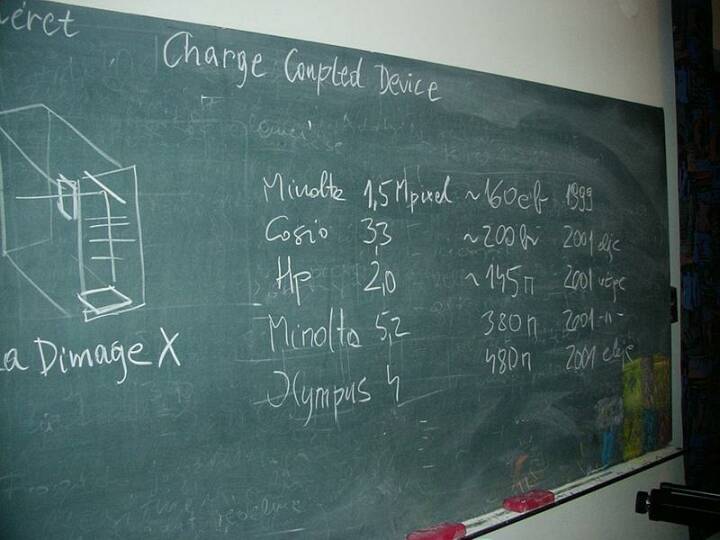 éret
Charge Coupled Device
Minolta 1,5 Mpixel ~160eft 1999
Cosio 3,3 ~200eft 2001 eleje
Hp 2,0 ~145 n 2001 vége
Minolta 5,2 380 n 2001 -n-
Olympus 4 480 n 2001 eleje
a Dimage X